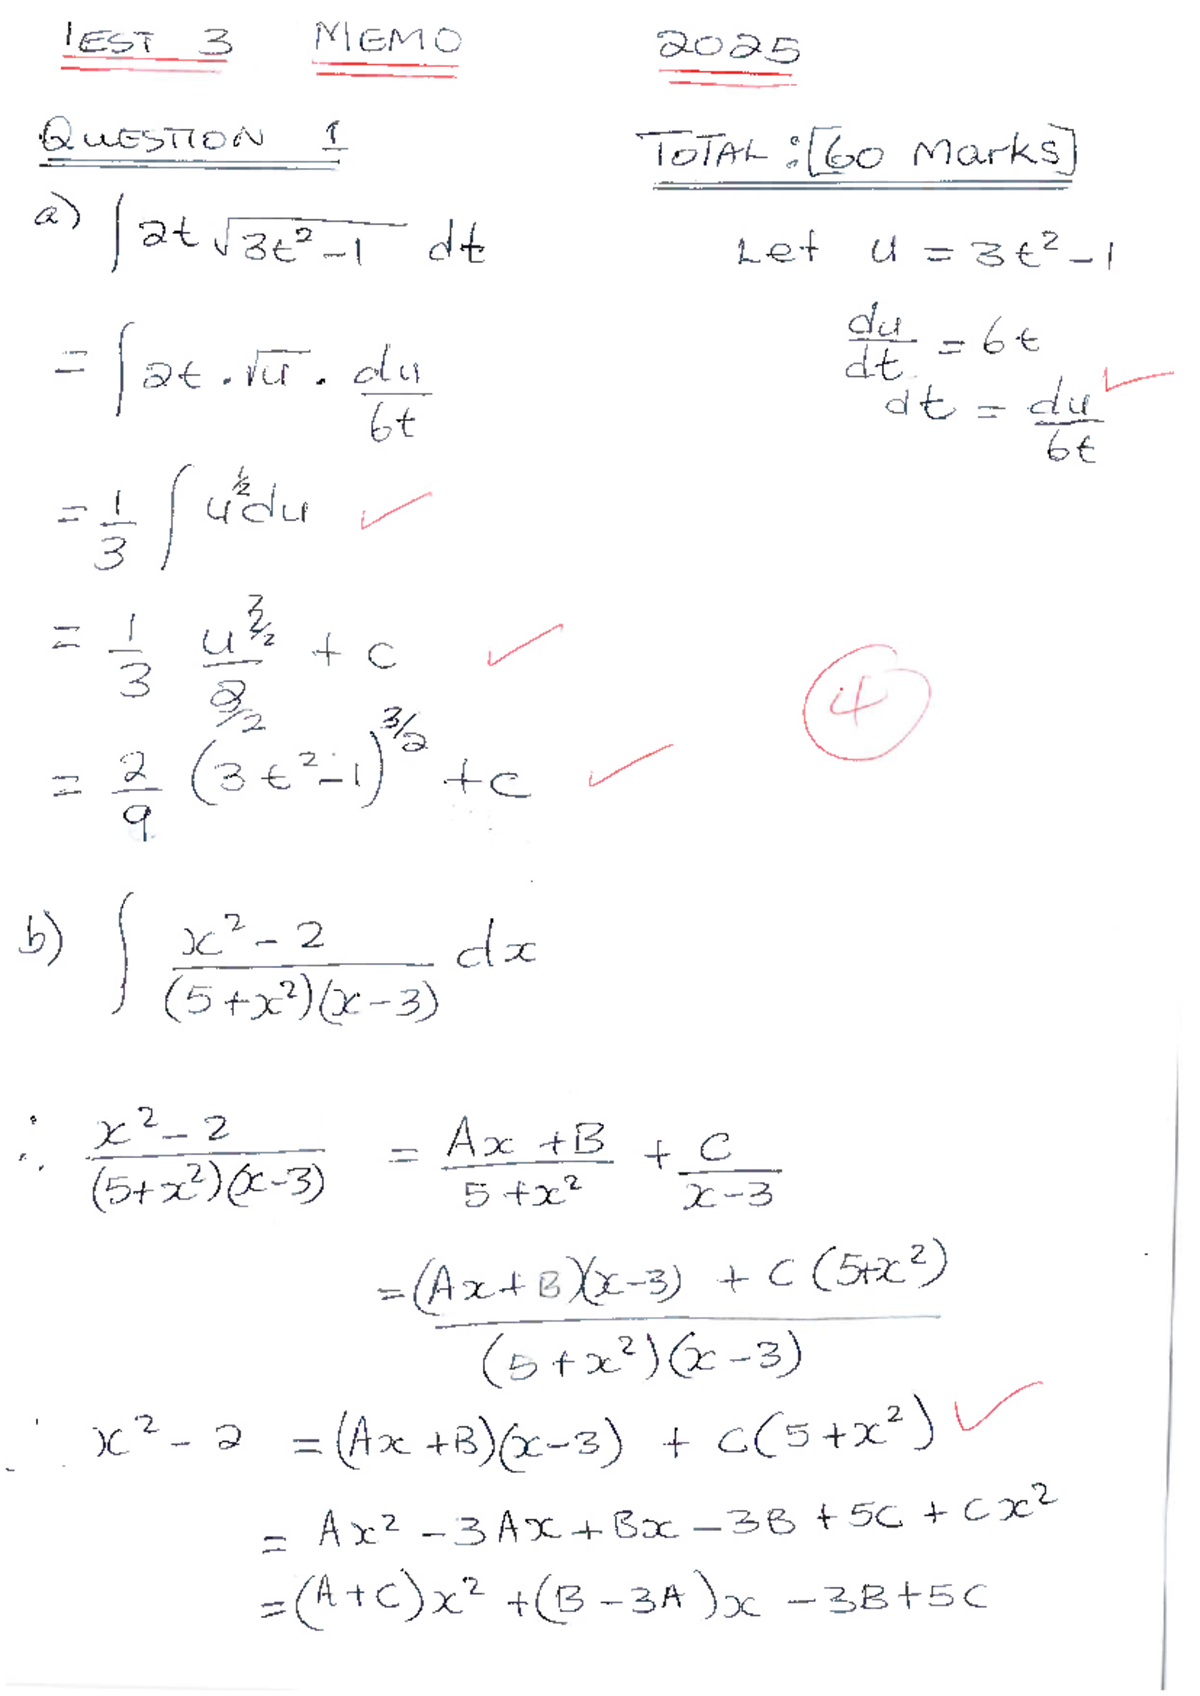 TEST 3 MEMO 2025
QUESTION 1 TOTAL: [60 Marks]
a) ∫ 2t √(3t² - 1) dt Let u = 3t² - 1
= ∫ 2t . √u . du/6t du/dt = 6t
dt = du/6t
= 1/3 ∫ u^(1/2) du
= 1/3 u^(3/2)/(3/2) + c
4
= 2/9 (3t² - 1)^(3/2) + c
b) ∫ (x² - 2)/((5 + x²)(x - 3)) dx
∴ (x² - 2)/((5 + x²)(x - 3)) = (Ax + B)/(5 + x²) + C/(x - 3)
= ((Ax + B)(x - 3) + C(5 + x²))/((5 + x²)(x - 3))
∴ x² - 2 = (Ax + B)(x - 3) + C(5 + x²)
= Ax² - 3Ax + Bx - 3B + 5C + Cx²
= (A + C)x² + (B - 3A)x - 3B + 5C